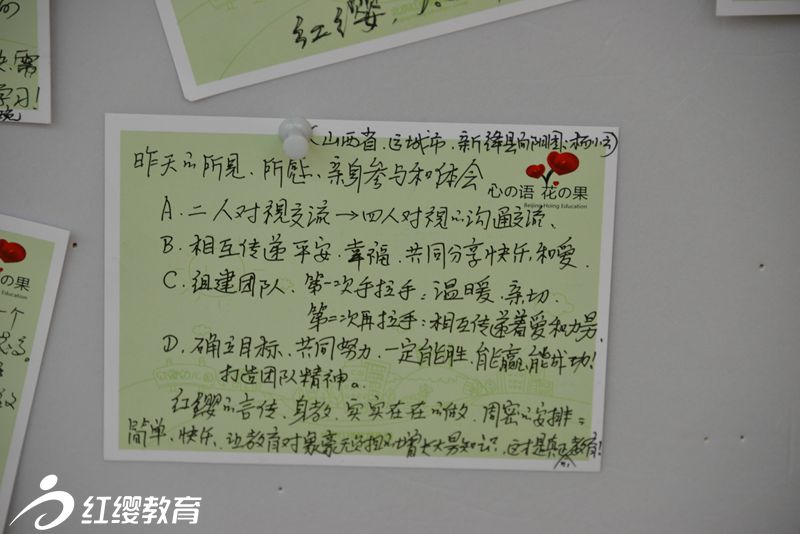 红缨,
需
学习!
(山西省.运城市.新绛县
昨天的所见、所感、亲身参与和体会
心の语 花の果
Beijing Hoing Education
A. 二人对视交流→四人对视的沟通交流、
B. 相互传递平安、幸福、共同分享快乐,和爱.
C. 组建团队、第一次手拉手:温暖、亲切.
第二次再拉手:相互传递着爱和力量.
D. 确立目标、共同努力、一定能胜,能赢,能成功!
打造团队精神。
红缨的言传、身教、实实在在的做、周密的安排:
简单、快乐、让教育对象毫无负担的增长大量知识、这才是真正教育!
の果
Education
一个
红缨教育